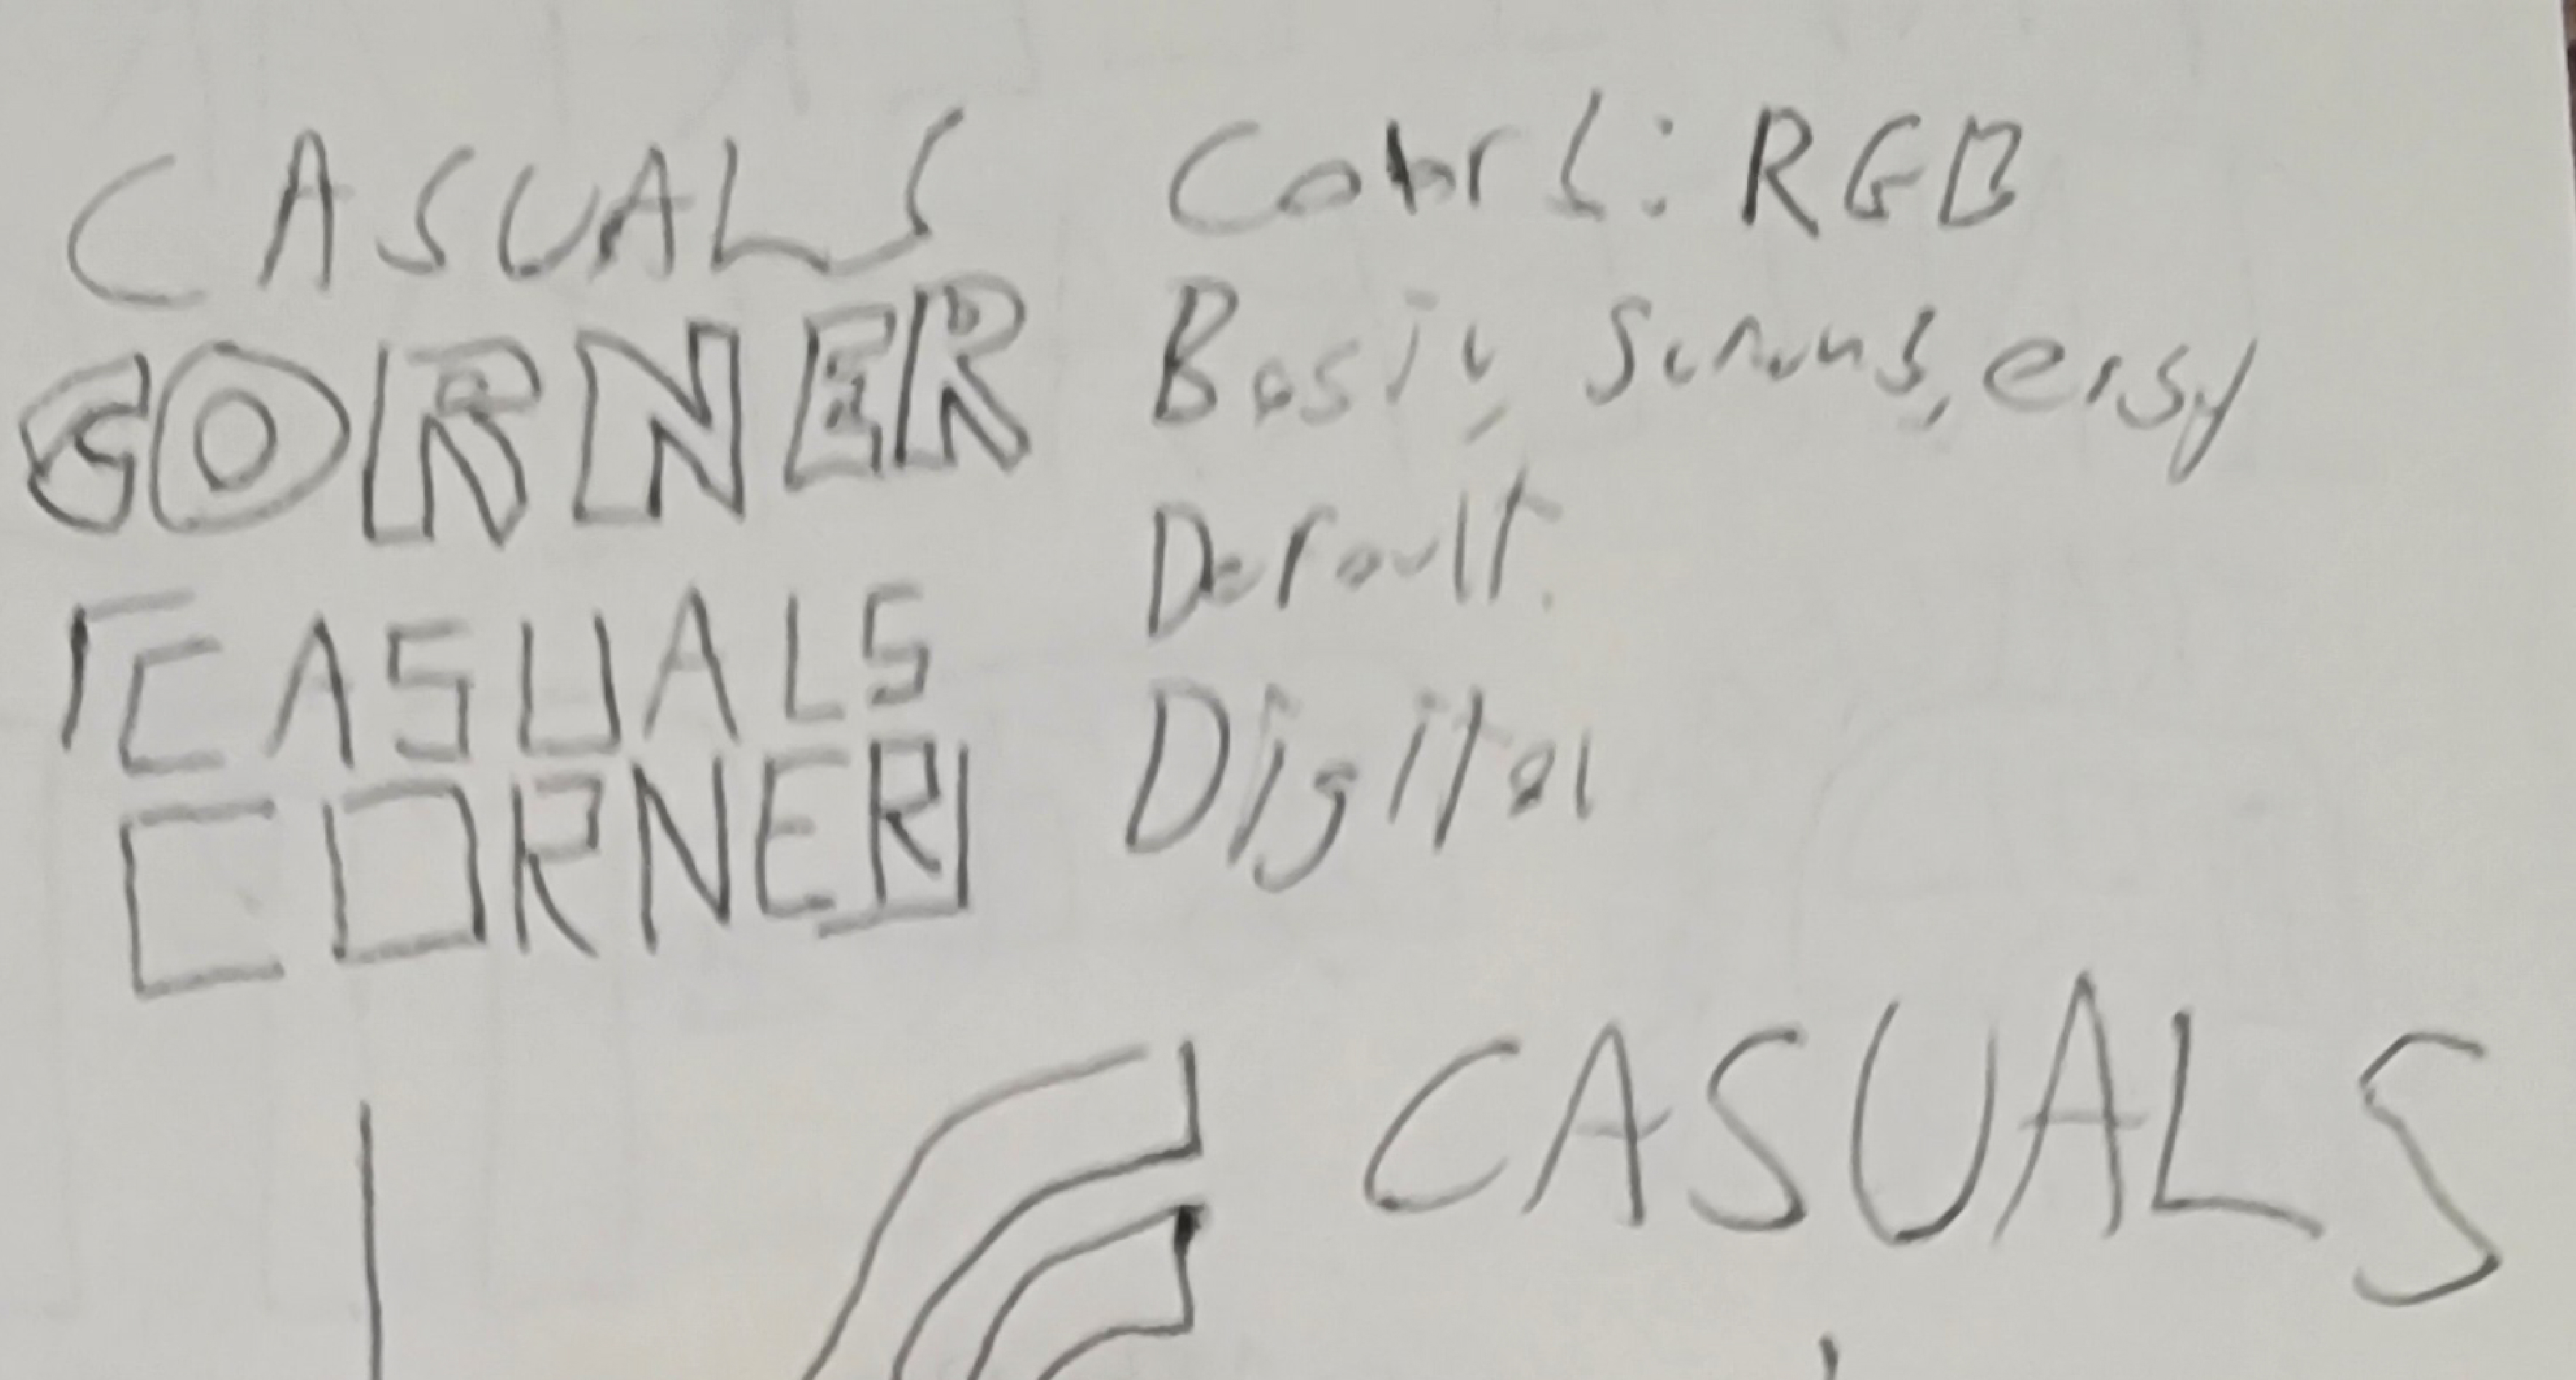 CASUALS
CORNER
CASUALS
CORNER
Colors: RGB
Basic, easy
Default.
Digital
CASUALS